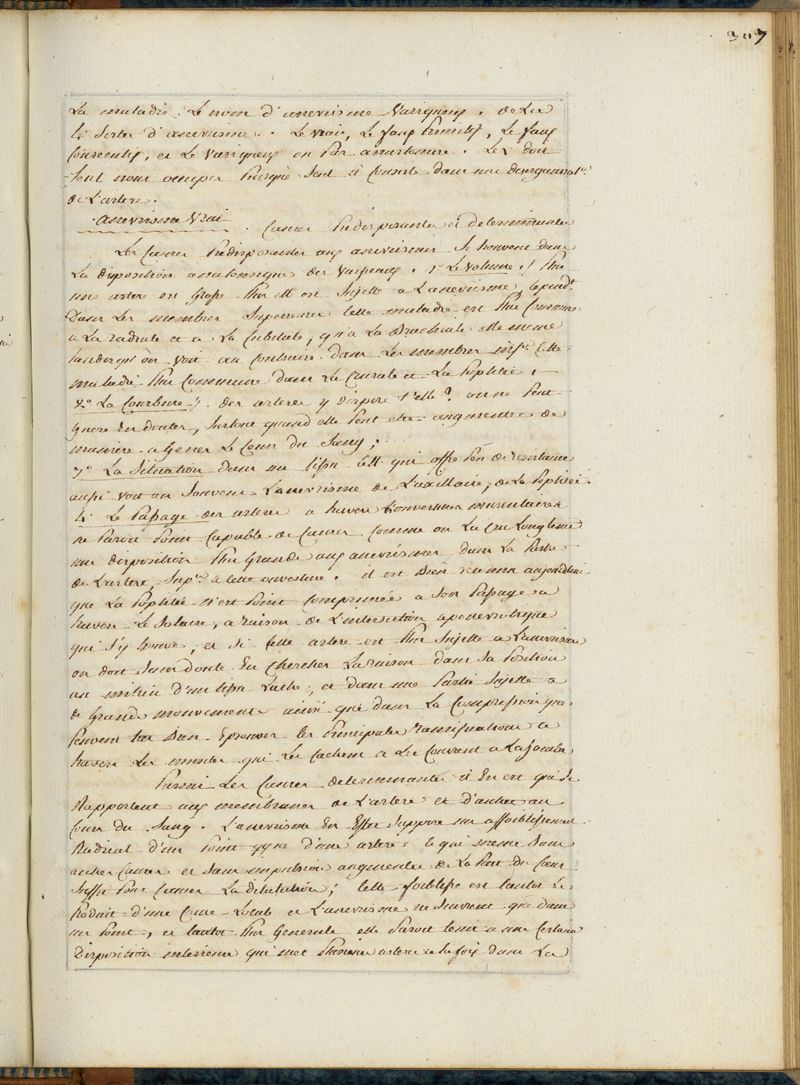 307
La maladie. Le nom d'anevrisme Variqueux. de La
4 sortes d'anevrisme. Le vrai, Le faux Primitif, Le faux
Consecutif, et Le Variqueux ou Par anastomose. Les
sont à Consiste dans une
de L'artere.
anevrisme Vrai. Causes Predisposantes et determinantes
Les Causes Predisposantes aux anevrismes se trouvent dans
La disposition anatomique des Vaisseaux. 1° Le Volume. Plus
une artere est Grosse Plus elle est sujette a L'anevrisme, cepend.t
Dans Les membres Superieurs Cette maladie est Plus Commune
a La radiale et a La Cubitale, qu'a La Brachiale elle meme
tandis qu'on voit au Contraire dans Les membres inf.rs Cette
maladie Plus Commune dans La Crurale et La Poplitée,
2° La Courbure des arteres y dispose t'elle? on ne Peut
Guere en douter, surtout quand elle Peut etre augmentée de
maniere a Gener Le Cours du Sang;
3° La Situation dans un tissu Cell. qui offre Peu de resistance
aussi voit on Souvent L'anevrisme de L'axillaire, de La Poplitée.
4° Le Passage des arteres a travers d'ouvertures musculaires
ne Paroit Point Capable de Causer Comme on L'a Cru Longtems
une disposition Plus Grande aux anevrismes dans La Partie
de L'artere Sup.re a Cette ouverture. il est Bien reconnu aujourdhui
que La Poplitée n'est Point Comprimée a Son Passage a
travers Le Solaire, a raison de L'intersection aponevrotique
qui s'y trouve, et si Cette artere est Plus Sujette a L'anevrisme
on doit Sans doute En Chercher La raison dans Sa Position
au milieu d'un tissu Lache, et dans une Partie Sujette a
de Grands mouvements ainsi que dans La Compression que
Peuvent tres Bien Eprouver les Principales ramifications a
travers Les muscles qui Les Cachent et Les Couvrent a La jambe
Parmi Les Causes determinantes il En est qui se
Rapportent aux membranes de L'artere et d'autres au
Cours du Sang. L'anevrisme En Effet Suppose un affoiblissement
Radical d'un Point q.q.ue d'une artere: ce qui meme Sans
autre Cause et Sans impulsion augmentée de La Part du Coeur
Suffit Pour Causer La dilatation; Cette foiblesse est tantot Le
Produit d'une Cause Locale et L'anevrisme ne Survient que dans
un Point, et tantot Plus Generale elle Paroit tenir a une Certaine
Disposition interieure qui met Plusieurs arteres a la fois dans La